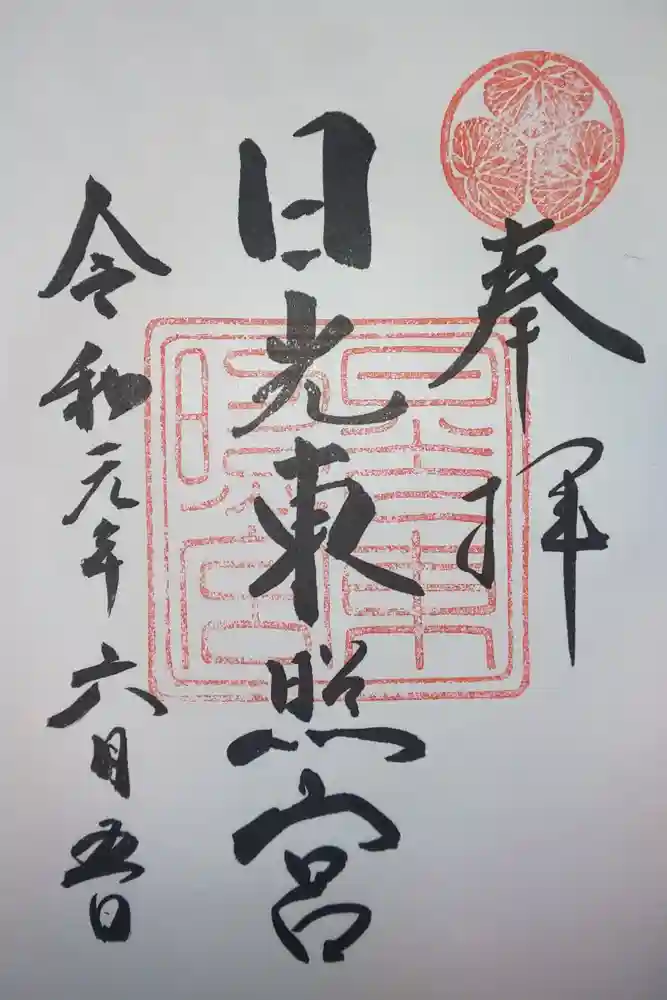 奉拝
日光東照宮
令和元年六月五日